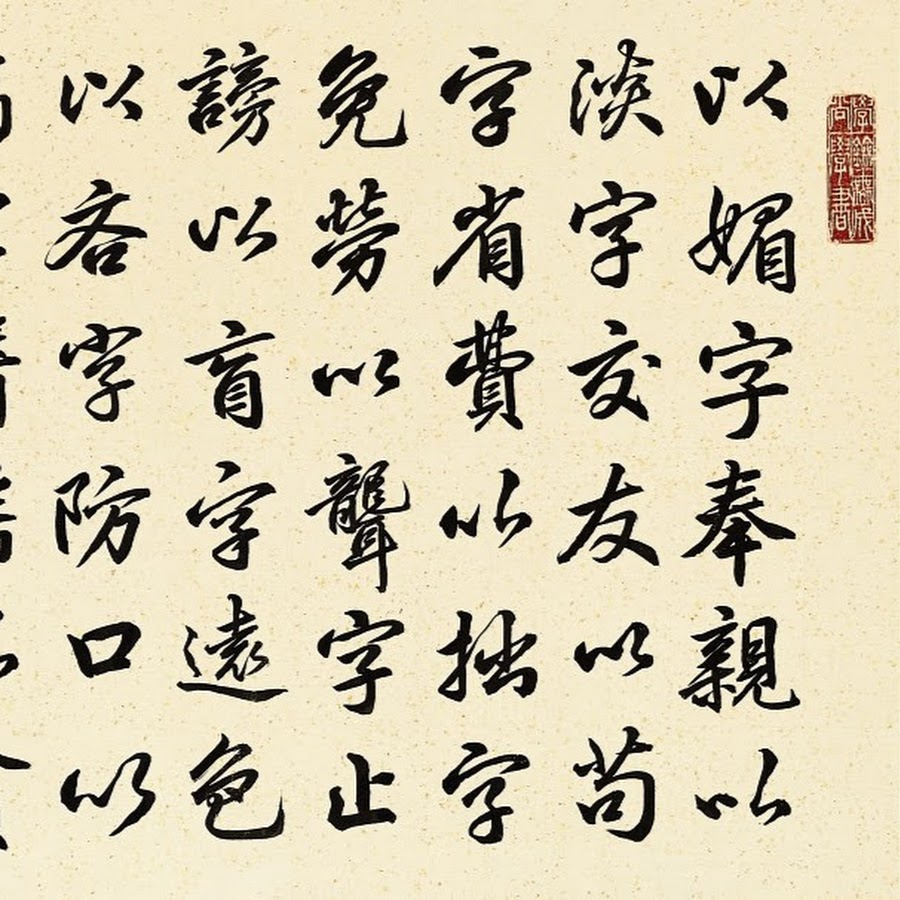 以媚字奉親以
淡字交友以苟
字省費以拙字
免勞以聾字止
謗以盲字遠色
以吝字防口以